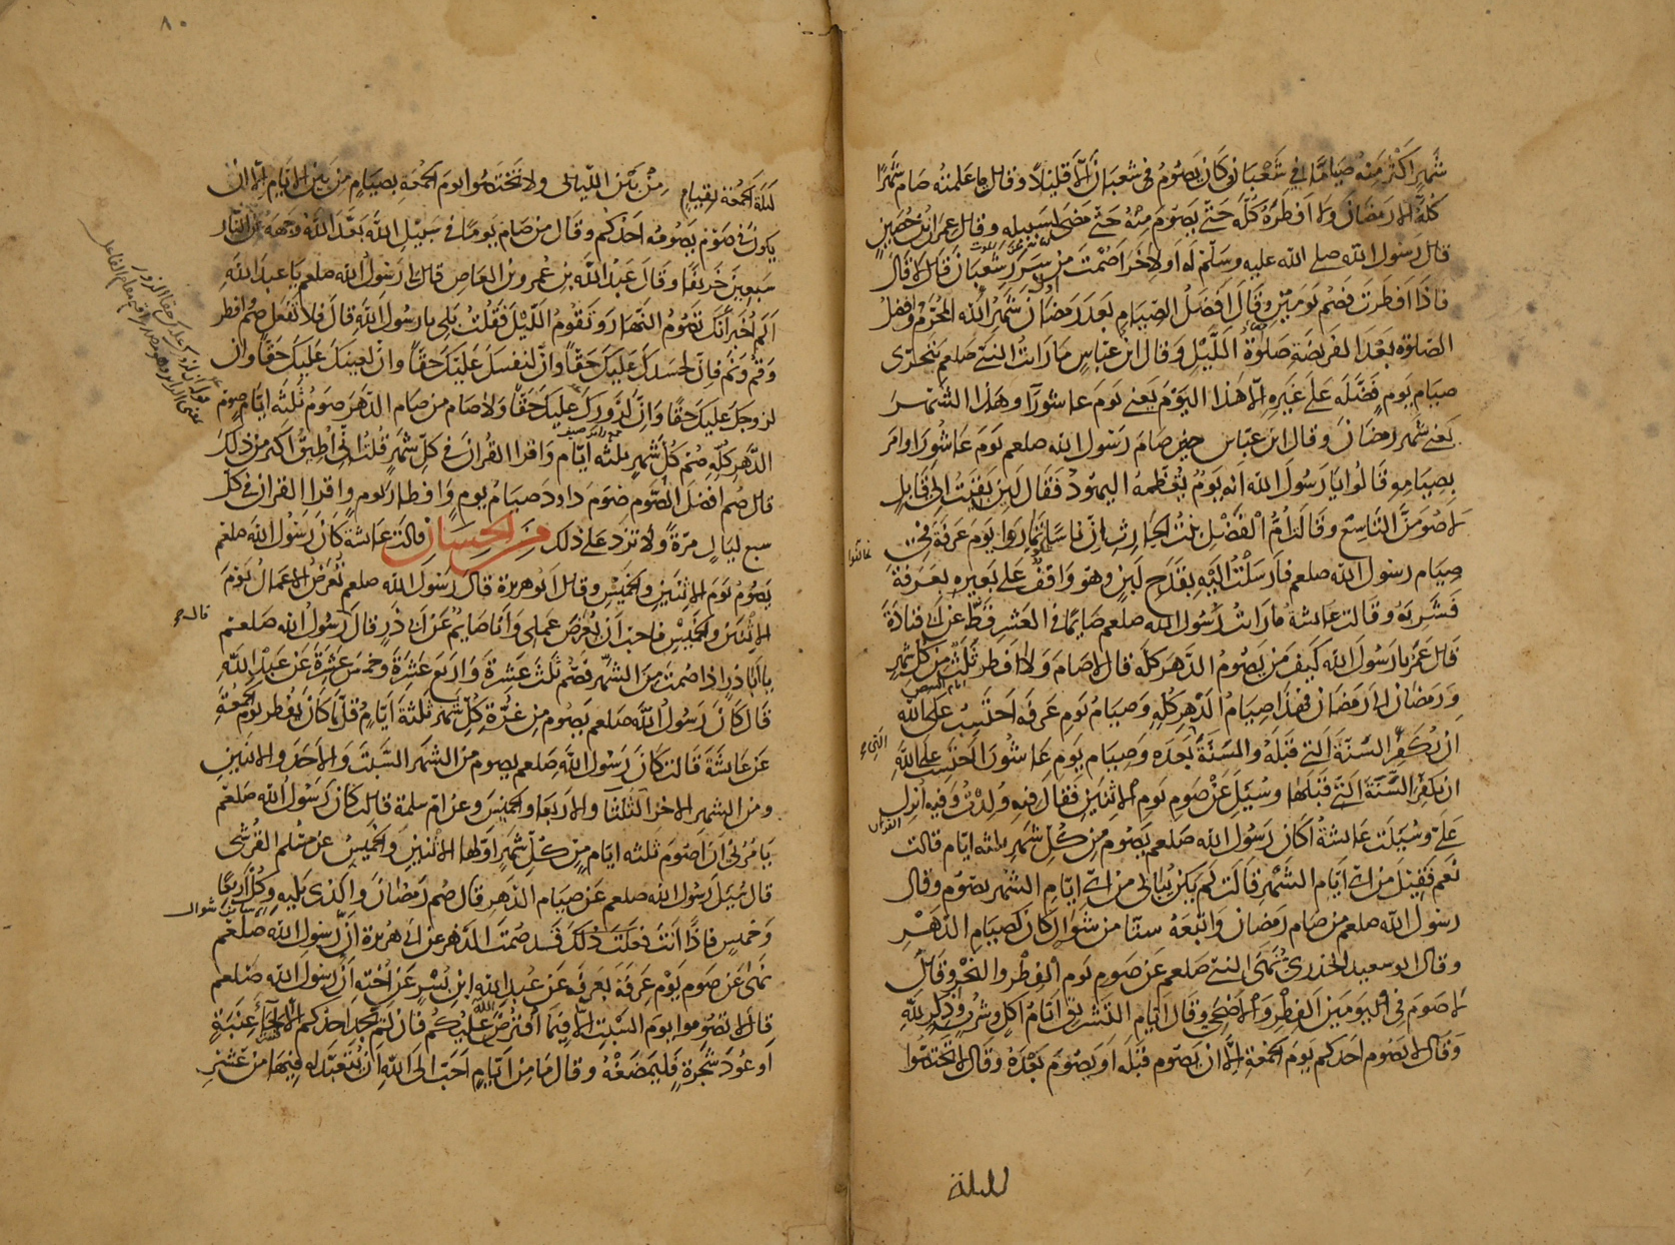 شهر اكثر منه صياما في شعبان كان يصوم في شعبان الا قليلا وقالت ما علمته صام شهرا
كله الا رمضان ولا افطره كله حتى يصوم منه حتى مضى لسبيله وقال عمران بن حصين
قال رسول الله صلى الله عليه وسلم له او لاخر اصمت من سرر شعبان قال لا قال
فاذا افطرت فصم يومين وقال افضل الصيام بعد رمضان شهر الله المحرم وافضل
الصلوة بعد الفريضة صلوة الليل وقال ابن عباس ما رايت النبي صلعم يتحرى
صيام يوم فضله على غيره الا هذا اليوم يعني يوم عاشورا وهذا الشهر
يعني شهر رمضان وقال ابن عباس حين صام رسول الله صلعم يوم عاشورا وامر
بصيامه قالوا يا رسول الله انه يوم يعظمه اليهود فقال لين بقيت الى قابل
لاصومن التاسع وقالت ام الفضل بنت الحارث ان ناسا تماروا يوم عرفة في
صيام رسول الله صلعم فارسلت اليه بقدح لبن وهو واقف على بعيره بعرفة
فشربه وقالت عائشة ما رايت رسول الله صلعم صائما في العشر قط عن ابي قتادة
قال عمر يا رسول الله كيف من يصوم الدهر كله قال لا صام ولا افطر ثلث من كل شهر
ايام البيض
ورمضان الى رمضان فهذا صيام الدهر كله وصيام يوم عرفة احتسب على الله
ان يكفر السنة التي قبله والسنة بعده وصيام يوم عاشورا احتسب على الله
التي
ان يكفر السنة التي قبلها وسئل عن صوم يوم الاثنين فقال فيه ولدت وفيه انزل
القران
علي وسئلت عائشة اكان رسول الله صلعم يصوم من كل شهر ثلثه ايام قالت
نعم فقيل من اي ايام الشهر قالت لم يكن يبالي من اي ايام الشهر يصوم وقال
رسول الله صلعم من صام رمضان واتبعه ستا من شوال كان كصيام الدهر
وقال ابو سعيد الخدري نهى النبي صلعم عن صوم يوم الفطر والنحر وقال
لا صوم في اليومين الفطر والاضحى وقال ايام التشريق ايام اكل وشرب وذكر لله
وقال لا يصوم احدكم يوم الجمعة الا ان يصوم قبله او يصوم بعده وقال لا تختصوا
لليلة
٨٠
ليلة الجمعة بقيام من بين الليالي ولا تختصوا يوم الجمعة بصيام من بين الايام الا ان
يكون في صوم يصومه احدكم وقال من صام يوما في سبيل الله بعد الله وجهه عن النار
سبعين خريفا وقال عبد الله بن عمرو بن العاص قال لي رسول الله صلعم يا عبد الله
الم اخبر انك تصوم النهار وتقوم الليل فقلت بلى يا رسول الله قال فلا تفعل صم وافطر
وقم ونم فان لجسدك عليك حقا وان لنفسك عليك حقا وان لعينك عليك حقا وان
لزوجك عليك حقا وان لزورك عليك حقا ولا صام من صام الدهر صوم ثلثه ايام صوم
الدهر كله صم كل شهر ثلثه ايام واقرا القران في كل شهر قلت اني اطيق اكثر من ذلك
قال صم افضل الصوم صوم داود صيام يوم وافطار يوم واقرا القران في كل
سبع ليال مرة ولا تزد على ذلك من الحسان قالت عائشة كان رسول الله صلعم
يصوم يوم الاثنين والخميس وقال ابو هريرة قال رسول الله صلعم تعرض الاعمال يوم
الاثنين والخميس فاحب ان يعرض عملي وانا صايم عن ابي ذر قال رسول الله صلعم
قال
يا ابا ذر اذا صمت من الشهر فصم ثلث عشرة واربع عشرة وخمس عشرة عن عبد الله
قال كان رسول الله صلعم يصوم من غرة كل شهر ثلثة ايام قلما كان يفطر يوم الجمعة
عن عائشة قالت كان رسول الله صلعم يصوم من الشهر السبت والاحد والاثنين
ومن الشهر الاخر الثلثا والاربعا والخميس وعن ام سلمة قالت كان رسول الله صلعم
يامرني ان اصوم ثلثه ايام من كل شهر اولها الاثنين والخميس عن مسلم القرشي
قال سئل رسول الله صلعم عن صيام الدهر قال صم رمضان والذي يليه وكل اربعا
وخميس فاذا انت فعلت ذلك فقد صمت الدهر عن ابي هريرة ان رسول الله صلعم
نهى عن صوم يوم عرفة بعرفة عن عبد الله ابن بسر عن اخته ان رسول الله صلعم
قال لا تصوموا يوم السبت الا فيما افترض عليكم فان لم يجد احدكم الا لحا عنبة
او عود شجرة فليمضغه وقال ما من ايام احب الى الله ان يتعبد له فيها من عشر